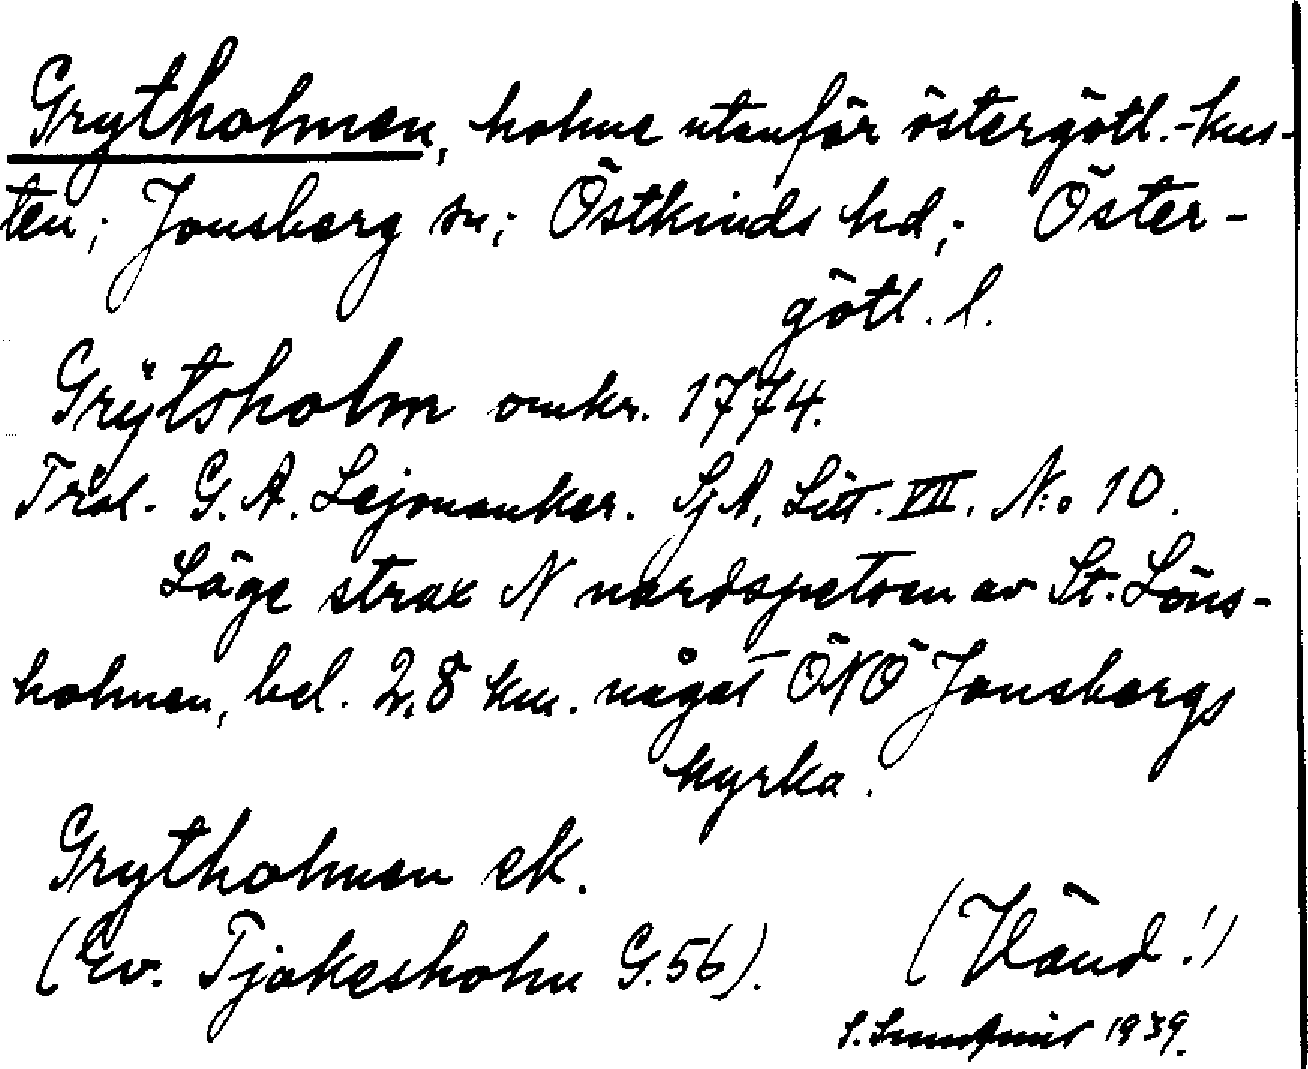 Grytholmen, holme utanför östergötl.-kus-
ten; Jonsberg sn; Östkinds hd; Öster-
götl. l.
Grÿtsholm omkr. 1774.
Träl. G. A. Lejonanker. SjA, Litt. VII. N:o 10.
Läge strax N nordspetsen av St. Löns-
holmen, bel. 2,8 km. något ÖNÖ Jonsbergs
kyrka.
Grytholmen ek.
(Ev. Tjokesholm G.56).
(Vänd!)
S. 1939.